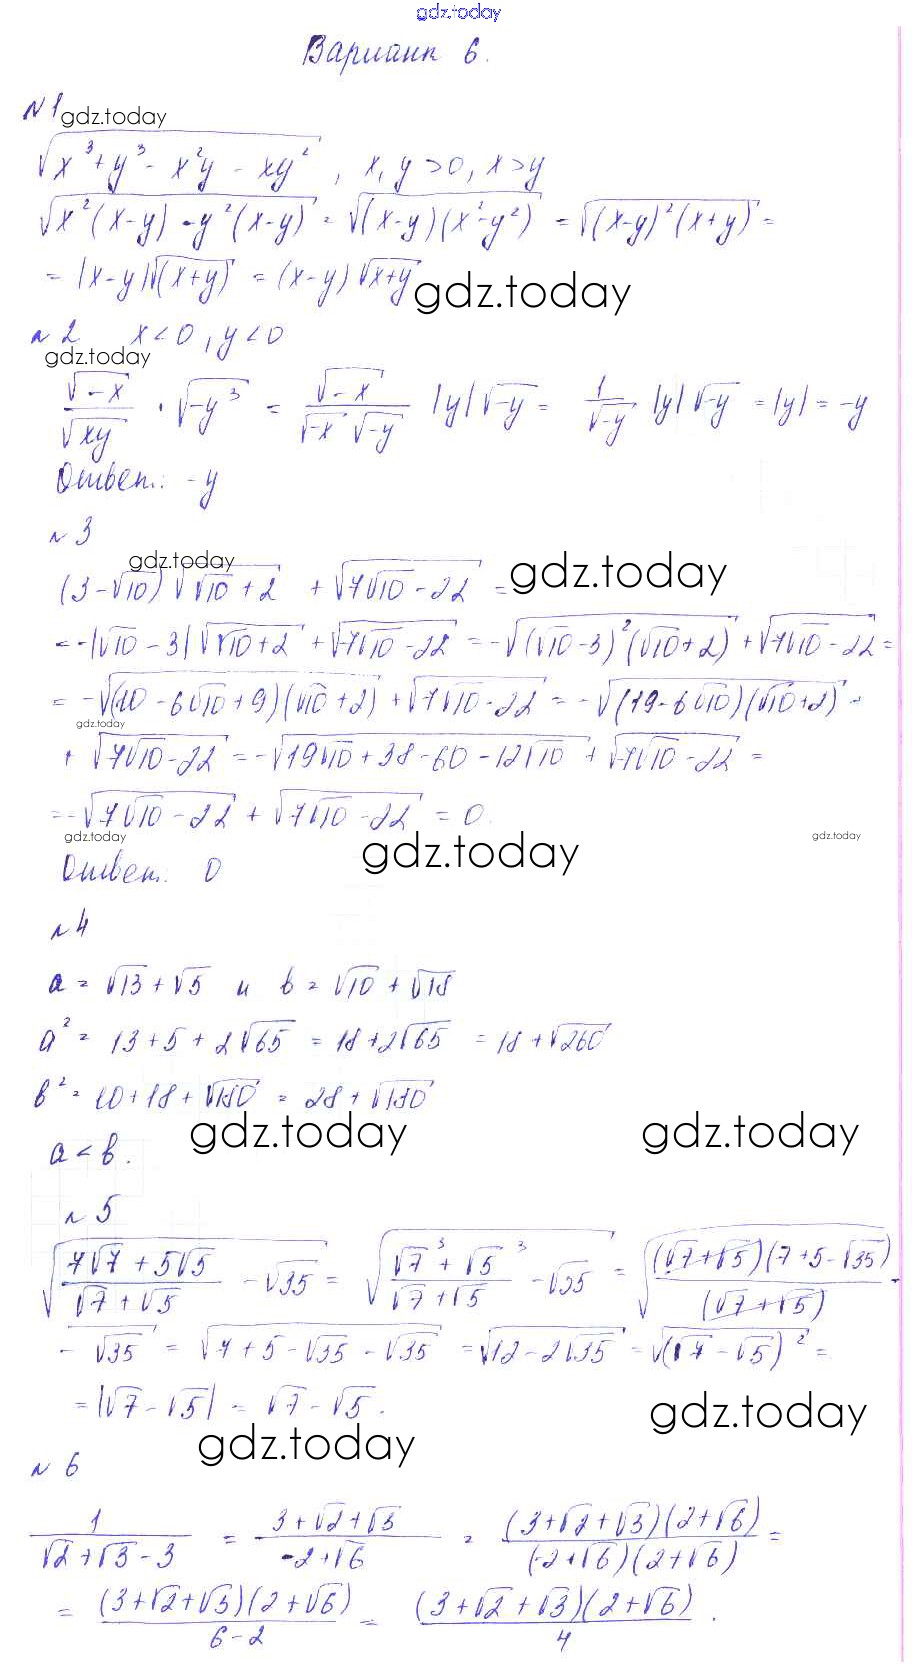 gdz.today
Вариант 6.
№1 gdz.today
√(x³ + y³ - x²y - xy²), x, y > 0, x > y
√(x²(x-y) - y²(x-y)) = √((x-y)(x²-y²)) = √((x-y)²(x+y)) =
= |x-y|√(x+y) = (x-y)√(x+y) gdz.today
№2 x<0, y<0
gdz.today
√(-x)/√(xy) · √(-y³) = √(-x)/(√(-x) √(-y)) |y|√(-y) = 1/√(-y) |y|√(-y) = |y| = -y
Ответ: -y
№3
gdz.today gdz.today
(3-√10)√(√10+2) + √(7√10-22) =
= -|√10-3|√(√10+2) + √(7√10-22) = -√((√10-3)²(√10+2)) + √(7√10-22) =
= -√((10-6√10+9)(√10+2)) + √(7√10-22) = -√((19-6√10)(√10+2)) +
gdz.today
+ √(7√10-22) = -√(19√10+38-60-12√10) + √(7√10-22) =
= -√(7√10-22) + √(7√10-22) = 0.
gdz.today gdz.today gdz.today
Ответ: 0
№4
a = √13+√5 и b = √10+√18
a² = 13+5+2√65 = 18+2√65 = 18+√260
b² = 10+18+√180 = 28+√180
gdz.today gdz.today
a < b.
№5
√((7√7+5√5)/(√7+√5) - √35) = √((√7³+√5³)/(√7+√5) - √35) = √((√7+√5)(7+5-√35)/(√7+√5) -
- √35) = √(7+5-√35-√35) = √(12-2√35) = √((√7-√5)²) =
= |√7-√5| = √7-√5.
gdz.today gdz.today
№6
1/(√2+√3-3) = (3+√2+√3)/(-2+√6) = (3+√2+√3)(2+√6)/((-2+√6)(2+√6)) =
= (3+√2+√3)(2+√6)/(6-2) = (3+√2+√3)(2+√6)/4.